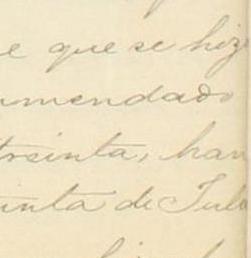 e que se hiz
omendado
treinta, han
unta de Tul